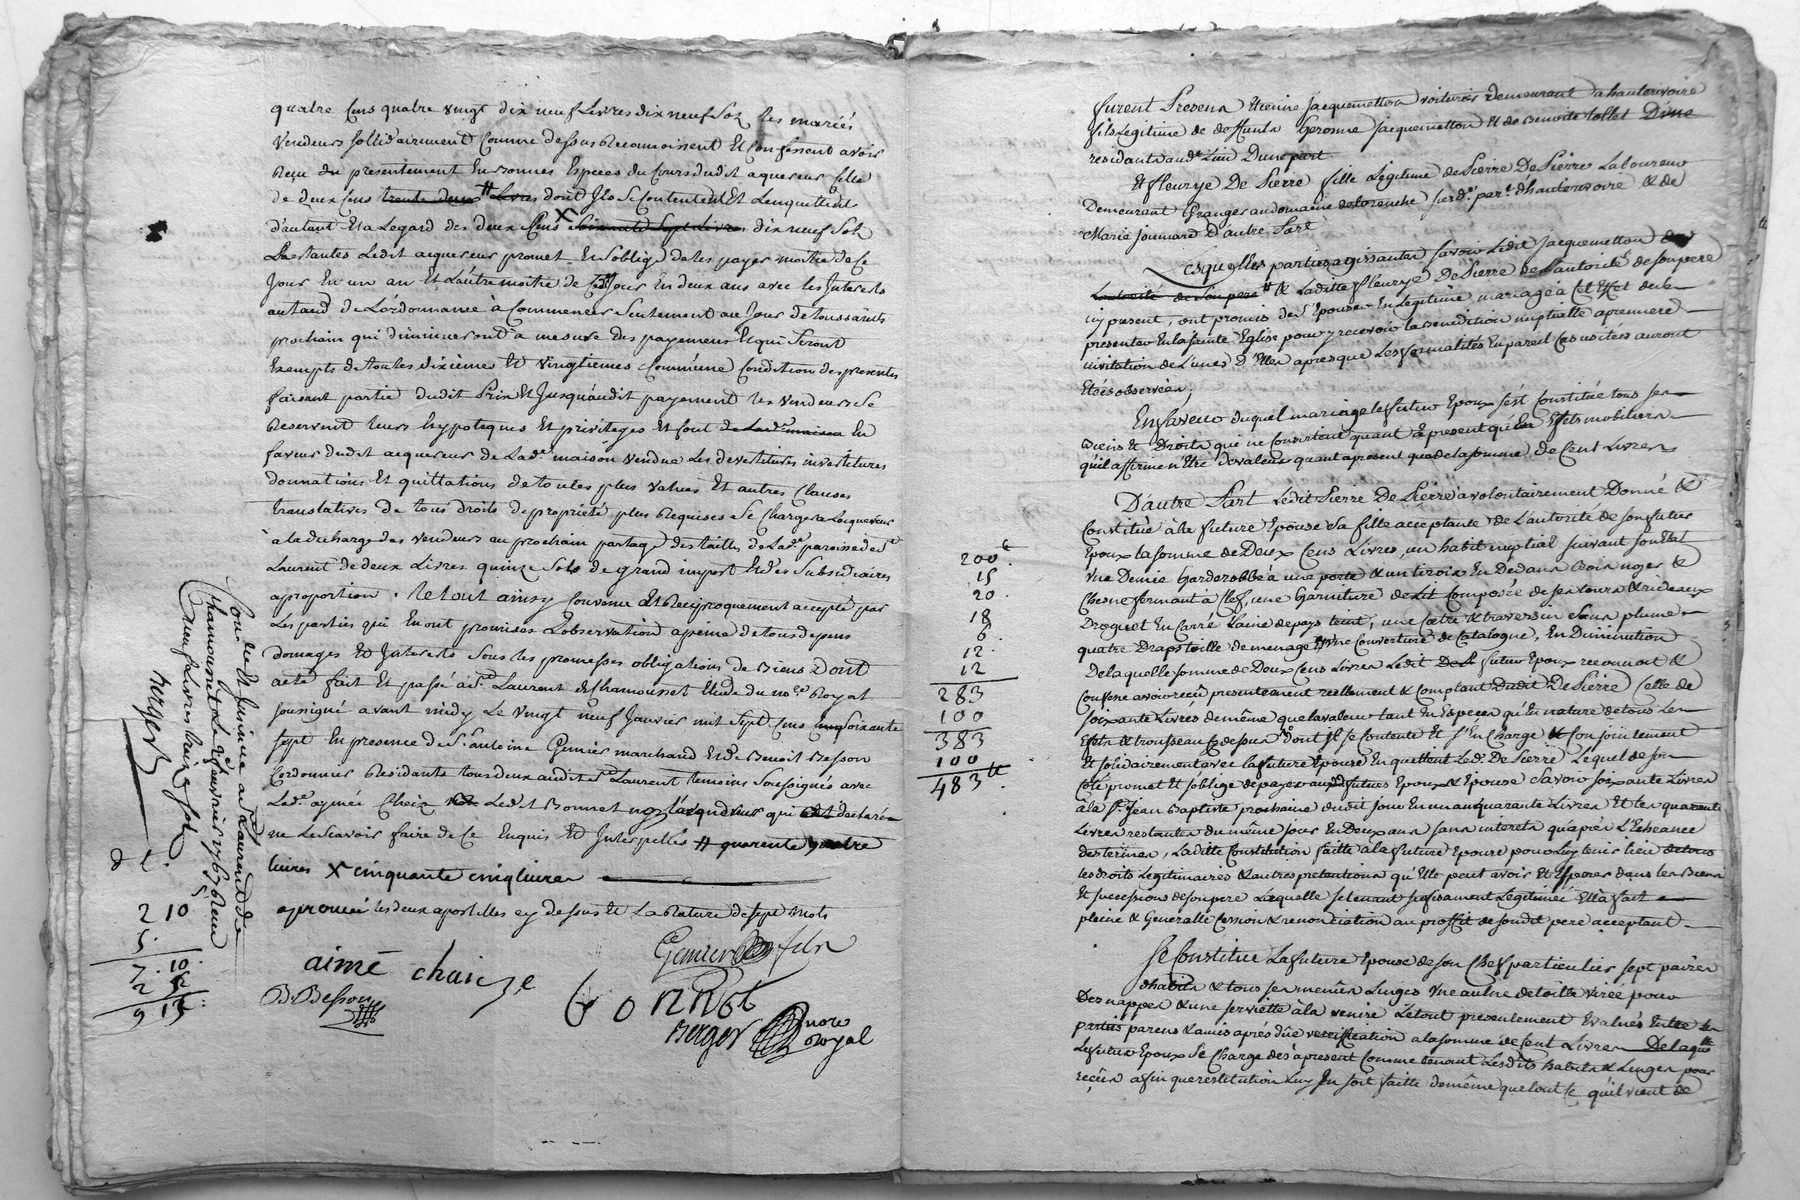 quatre Cens quatre vingt dix neuf Livres dix neuf Sols les mariés
Vendeurs sollidairement Comme dessus Reconnoissent Et Confessent avoir
Reçu du presentement En bonnes Especes du Cours dudit aquereur Celle
de deux Cens trente deux # Livres dont Ils se Contentent Et L'enquittent
d'autant Et a Legard des deux Cens X Soixante Sept Livres dix neuf Sols
Restantes Ledit aquereur promet Et S'oblige de les payer moitié de Ce
Jour En un an Et L'autre moitié de Cedit Jour En deux ans avec les Interets
au taud de L'ordonnance à Commencer Seulement au Jour de toussaints
prochain qui diminueront a mesure des payemens Et qui Seront
Exempts de toutes dixieme Et vingtiemes Comme une Condition des presentes
faisant partie dudit Prix Et Jusqu'audit payement les vendeurs Se
Reservent leurs hypoteques Et privileges Et font de Lad.e maison En
faveur dudit acquereur de Lad.e maison vendue Les devestitures investitures
donnations Et quittations de toutes plus values Et autres Clauses
translatives de tous droits de propriété plus Requises Se Chargera Lacquereur
à la decharge des vendeurs au prochain partage des tailles de Lad.e paroisse de S.t
Laurent de deux Livres quinze Sols de grand import Et des Subsidiaires
a proportion. Le tout ainsy Convenu Et Reciproquement accepté par
Les parties qui En ont promises L'observation a peine de tous depens
domages Et Interets Sous les promesses obligations de Biens Dont
acte fait Et passé à S.t Laurent de Chamousset Etude du no.re Royal
soussigné avant midy Le vingt neuf Janvier mil Sept Cens Soixante
sept En presence de S.r Antoine Genier marchand Et de Benoit Besson
Cordonnier Residants tous deux audit S.t Laurent temoins Soussignés avec
Led.t aymée Chaiz Ledit Bonnet non l'acquereur qui a declaré
ne Le scavoir faire de Ce Enquis Et Interpellés # quarente quatre
livres X cinquante cinq livres
aprouvé les deux apostilles cy dessus Et La Rature de sept mots
Genier fils
aimé chaize
B. Besson
bonnet
Berger no.re royal
Con.lé Et Insinué a S.t Laurend de
Chamousset Le 9 fevrier 1767 Reçu
neuf Livres treize sols
Berger
d l.
2 10
5
7. 10.
2 3.
9 13
200 #.
15
20.
18
6.
12.
12
283
100
383
100
483 #.
furent Presens Etienne Jacquemetton voiturier demeurant a hauterivoire
fils Legitime de deffunts Gerosme Jacquemetton Et de Benoite Collet Dune
residants aud.t Lieu Dune part
Et fleurye De Pierre fille Legitime de Pierre De Pierre Laboureur
Demeurant Granger au domaine de par.e d'hauterivoire & de
Marie Joannard D'autre Part
Lesquelles parties agissantes savoir Ledit Jacquemetton
L'autorité de son pere # & Laditte fleurye De Pierre de L'autorité de son pere
icy present, ont promis de s'Epouser En Legitime mariage à Cet Effet de se
presenter En La sainte Eglise pour y recevoir la benediction nuptialle a premiere
invitation de L'une d'Elles apres que Les formalités En pareil Cas usitées auront
Etées observées,
En faveur duquel mariage Le futur Epoux s'est Constitué tous ses
Biens Et Droits, qui ne Consistent quant à present qu'en Effets mobiliers
qu'il affirme n'Etre de valeur quant a present que de la somme de Cent Livres
D'autre Part Ledit Pierre De Pierre a volontairement Donné &
Constitué à la future Epouse sa fille acceptante de L'autorité de son futur
Epoux la somme de Deux Cens Livres, un habit nuptial suivant son Etat
Une Demie Garderobbe à une porte & un tiroir En Dedans Bois noyer &
Chesne fermant à clef, une Garniture de Lit Composée de ses tours & rideaux
Droguet En Carré Laine de pays teint, une Coetre & traversin sans plume
quatre Draps toille de menage & une Couverture de Catalogne, En Diminution
De laquelle somme de Deux Cens Livres Ledit futur Epoux reconnoit &
Confesse avoir reçu presentement reellement & Comptant Dudit De Pierre Celle de
soixante Livres de même que la valeur tant En Especes qu'En nature de tous Les
Effets & trousseau cy dessus dont Il se Contente Et s'En Charge & Conjointement
Et solidairement avec la future Epouse En quittent Led. De Pierre Lequel de son
Coté promet Et s'oblige de payer auxd. futurs Epoux & Epouse savoir soixante Livres
à la S.t Jean Baptiste prochaine dudit Jour En un an quarante Livres Et les quarante
Livres restantes du même jour En Deux ans sans interets qu'après L'Echeance
des termes, La ditte Constitution faitte à la future Epouse pour Luy tenir Lieu de tous
les droits Legitimaires & autres pretentions qu'Elle peut avoir Et Esperer dans les Biens
Et successions de son pere Laquelle se tenant sufisament Legitimée Ella fait
pleine & Generalle Cession & renonciation au proffit de son dit pere acceptant
Se Constitue La future Epouse de son Chef particulier sept paires
d'habits & tous ses menües Linges Une aulne de toille virée pour
Des nappes & une serviette à la venise Létout presentement Evalués Entre les
parties parens & amis aprés düe veriffication a la somme de Cent Livres De laqu.lle
Le futur Epoux se Charge dès à present Comme tenant Lesdits habits & Linges pour
reçües afin que restitution Luy En soit faitte de même que tout ce qu'il vient de